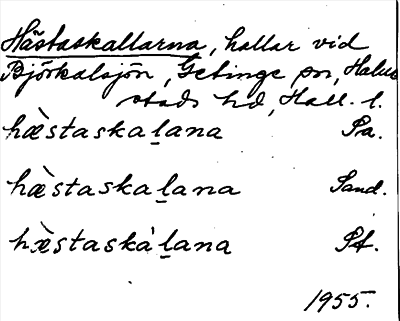 Hästaskallarna, hallar vid
Björkalsjön, Getinge sn, Halm
stads hd, Hall. l.
hæ̀staskaḻana Pa.
hæ̀staskaḻana Sand.
hæ̀staskàḻana Pf.
1955.